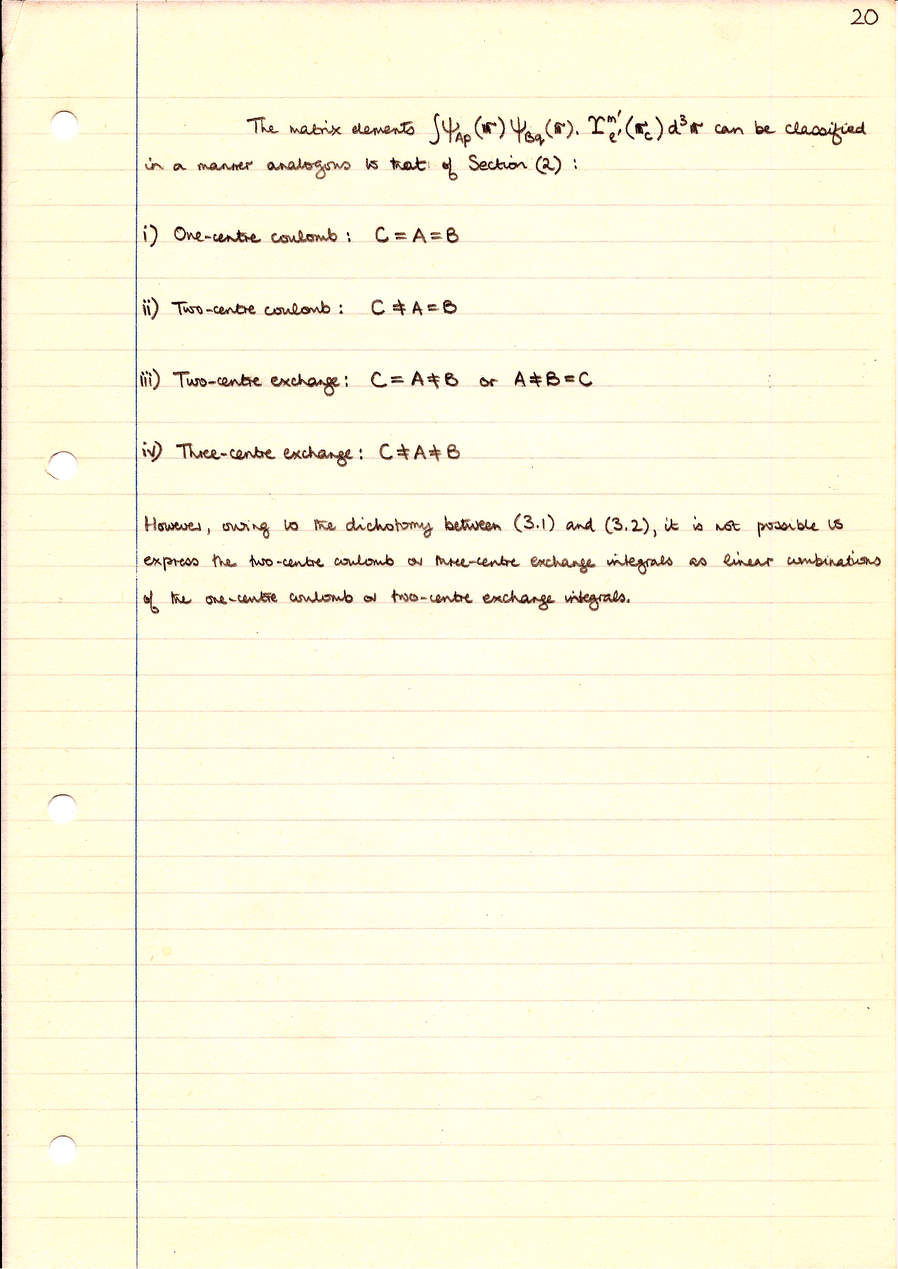 20
The matrix elements ∫ψ_Ap(𝕣) ψ_Bq(𝕣). Υ_ℓ'^m'(𝕣_c) d³𝕣 can be classified
in a manner analogous to that of Section (2) :
i) One-centre coulomb : C = A = B
ii) Two-centre coulomb : C ≠ A = B
iii) Two-centre exchange : C = A ≠ B or A ≠ B = C
iv) Three-centre exchange : C ≠ A ≠ B
However, owing to the dichotomy between (3.1) and (3.2), it is not possible to
express the two-centre coulomb or three-centre exchange integrals as linear combinations
of the one-centre coulomb or two-centre exchange integrals.